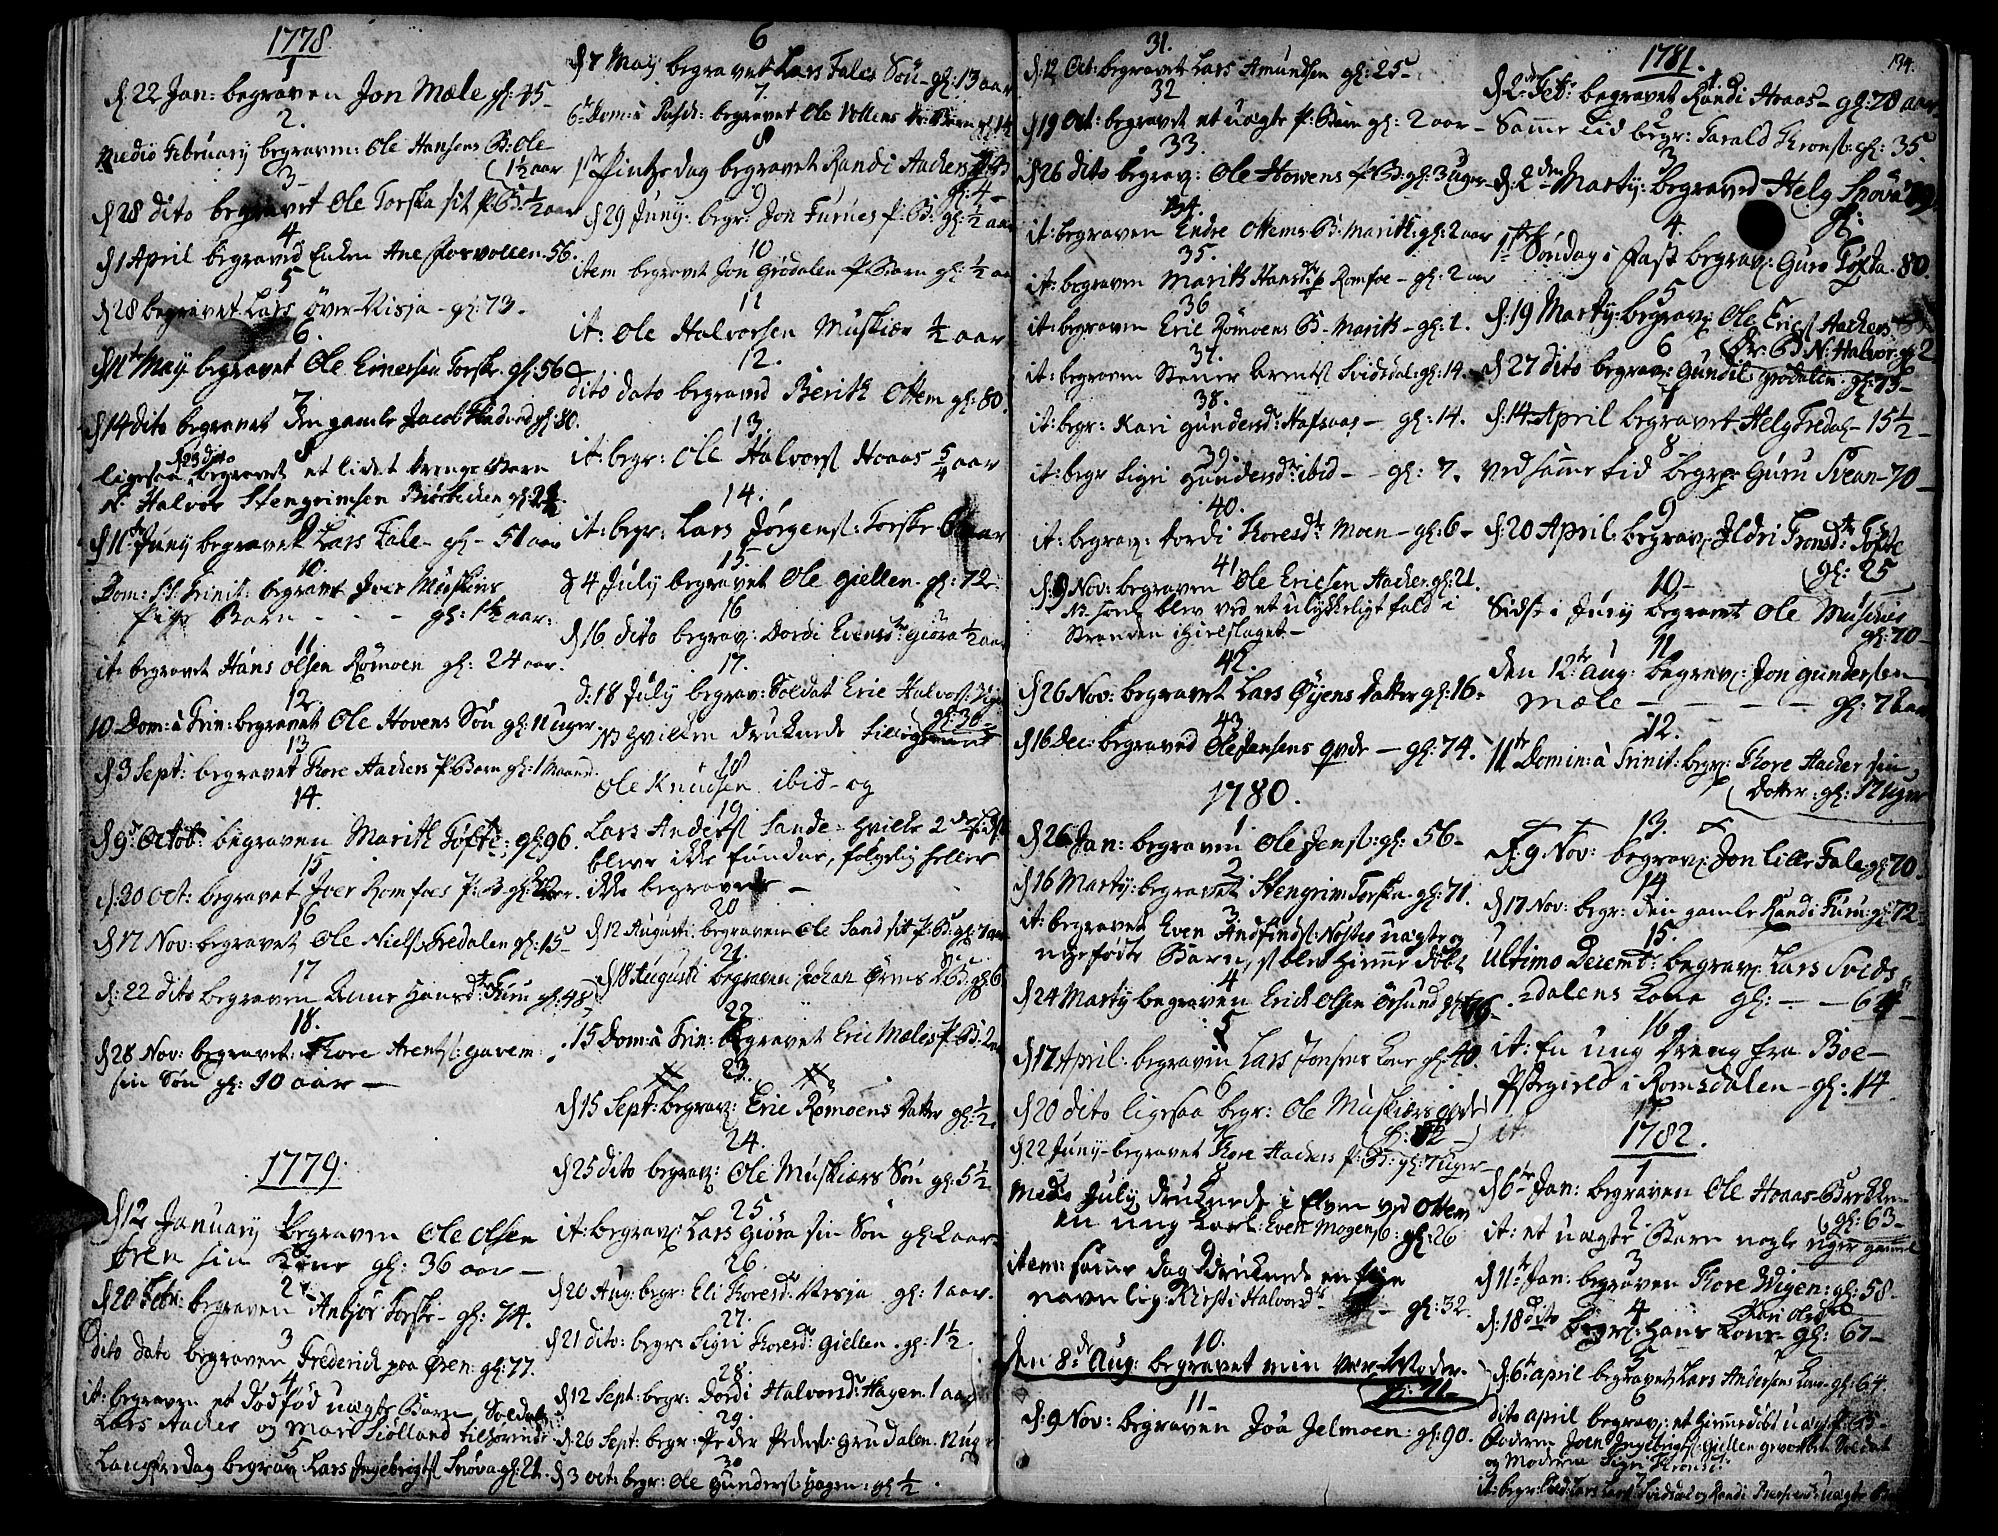 1778.
1
d 22 Jan: begraven Jon Mæle gl: 15
2.
Medio February begraven: Ole Hansens B: Ole
1½ aar
3
d 28 dito begravet Ole Torske sit P: B: ½ aar
4
d 1 April begraved Enken Ane 56.
5
d 28 begravet Lars over Visja - gl: 73.
6.
d 11te May begravet Ole Einersen Torske. gl: 56
7
d 14 dito begravet den gamle Jacob gl: 80.
8
d 23 dito
ligesaa begravet et lidet Drenge Barn
N: Halvor Stengrimsen gl: 2½.
9
d 11te Juny begravet Lars Fale - gl - 51 aar
10
Dom: Trinit: begravet Iver Muskiers
Pige Barn - - - gl: 1½ aar:
11
it: begravet Hans Olsen Romoen gl: 24 aar.
12
10 Dom: à Trin: begravet Ole Hovens Søn gl: 11 uger.
13
d 3 Sept: begravet Thore Hackers P: Barn gl: 1 Maaned.
14.
d 9de Octob: begraven Marith Tøfte; gl: 96.
15
d: 30 Oct: begravet Iver Romfoes P: B gl:
16
d 17 Nov: begravet Ole Niels: Fredalen gl: 15
17
d: 22 dito begraven Anne Hansdtr Furu gl: 48
18.
d 28 Nov: begravet Thore Arents: Gavem
sin Søn gl: 10 aar -
1779.
1
d 12 January begraven Ole Olsen
Øren sin Kone gl: 36 aar -
2
d 20 Febr: begraven Anbjør Torske - gl: 74.
3
Dito dato begraven Frederick paa Øren: gl: 77.
4
it: begraven et dødfød uægte Barn Soldat
Lars Hacker og Mari Siølland tilhørende
5
Langfredag begrav: Lars Ingebrigts: Snøva gl: 21.
6
d 7 May begravet Lars Fales Søn - gl: 13 aar
7.
6te Dom: à Pasch: begravet Ole Vollens Barn gl: 14
8
1ste Pintze dag begravet Randi Hackers
gl: 4 -
9
d 29 Juny: begr: Jon Furnes P: B: gl: ½ aar
10
item begravet Jon Grødalen P: Barn gl: ½ aar
11
it: Ole Halvorsen Muskiær ½ aar
12.
dito dato begraved Berith Ottem gl: 80.
13.
it: begr: Ole Halvors: Hoaas 5/4 aar
14.
it: begr: Lars Jørgens: Torske 6 aar
15.
d 4 July begravet Ole Giellen. gl: 72
16
d 16 dito begrav: Dordi Evensdtr: Giøra ½ aar
17.
d: 18 July begrav: Soldat Eric Halvors:
gl: 30 -
NB hvilken druknede tilligemed
18
Ole Knudsen ibid - og
19
Lars Anders: Sande - hvilke 2de
bleve ikke fundne, følgelig heller
ikke begravede -
20
d 12 Augusti begraven Ole Sand sit P: B: gl: 1 aar
21.
d 18 Augusti begraven Johan Ørens B: gl: 6
22
15 Dom: à Trin: begravet Eric Mæles P: B: 2
23.
d 15 Sept: begrav: Eric Rømoens datter gl: ½.
24.
d 25 dito begrav: Ole Muskiærs Søn gl: 5½
25.
it: begrav: Lars Giøra sin Søn gl: 2 aar
26.
d 20 Aug: begr: Eli Thoresdr: Visja gl: 1 aar.
27.
d 21 dito: begr: Sigri Thoresd: Giellen. gl: 1½
28.
d 12 Sept: begr: Dordi Halvorsdr: Hagen. 1 aar
29.
d: 26 Sept: begr: Peder Peders: Grudalen. 12 uger
30
d 3 Oct: begr: Ole Gunders: Hagen: gl ½.
31.
d: 12 Oct: begravet Lars Amundsen gl: 25 -
32
d 19 Oct: begravet et uægte P: Barn gl: 2 aar -
33.
d 26 dito begrav: Ole Howens P: B: gl: 3 uger -
34.
it: begraven Endre Ottems B: Marith: gl: 2 aar
35.
it: begraven Marith Hansdtr Romfoe - gl: 2 aar
36
it: begraven Eric Rømoens B: Marith - gl: 1.
37.
it: begraven Stener Arents: Svidsdal: gl: 14
38.
it: begr: Kari Gundersd: Hafsaas - gl: 14.
39.
it: begr Sigri Gundersdtr ibid - - gl: 7.
40.
it: begrav: Dordi Thoresdtr Moen - gl: 6 -
41
d: 9 Nov: begraven Ole Ericsen Hacker. gl: 21
NB som blev ved et ulykkeligt fald i
Stranden ihielslaget -
42.
d 26 Nov: begravet Lars Øyens datter gl: 16 -
43.
d 16 Dec: begraved Ole Jensens qvde - gl: 74.
1780.
1
d 26 Jan: begraven Ole Jens: gl: 56 -
2
d 16 Marty: begravet Stengrim Torske. gl: 71.
3
it: begravet Even Andfinds: Nøstes uægte og
nyefødte Barn, st blev hiemmedøbt
4
d 24 Marty begraven Erick Olsen Øssund gl: 76 -
5
d 17 April: begraven Lars Jonsens Kone gl: 40.
6
d 20 dito ligesaa begr: Ole Muskiærs qvde
gl: 72 -
7
d 22 Juny - begravet Thore Hackers P: B: gl: 7 uger
8
Medio July druknede i Elven ved Ottem
en ung Karl: Even Mogens: gl: 26
item: samme dag druknede en Pige
navnlig: Kirsti Halvorsdr - gl: 32.
10.
den 8de Aug: begravet min Moder.
gl: 71.
11 -
d: 9 Nov: begraven Joa Jelmoen: gl: 90.
1781.
134.
1
d 2den Feb: begravet Randi Hoaas - gl: 78 aar
2
Samme Tid begr: Tarald Throns: gl: 35.
3
d: 2den Marty: begraved Helg Snøva 79
gl:
4.
1ste Søndag i Fast begrav: Guro Tøfta - 80
5
d: 19 Marty: begrav: Ole Erics: Hackers
dr: B: N: Halvor. gl 2
6
d 27 dito begrav: Gundil Grødalen - gl: 73 -
7
d: 14 April begravet Helg Fredal - 15½ -
8
ved samme tid begr: Guru Svean - 70 -
9
d: 20 April begrav: Ildri Tronsdtr: Tøfte
gl: 25
10 -
Sidst i Juny begravet Ole Muskier
gl: 70 -
11
den 12te Aug: begrav: Jon Gundersen
Mæle - - - - gl: 7 aar
12.
11te Domin: à Trinit: begr: Thore Hacker sin
Datter: gl: 17 uger
13.
d: 9 Nov: begrav: Jon Lille Fale gl: 70.
14
d 17 Nov: begr: den gamle Randi Furu gl: 72 -
15.
Ultimo Decemb: begrav: Lars Svids-
dalens Kone gl: - - 64
16
it: En ung Dreng fra Boe -
Pstegield i Romsdalen - gl: 14
17
it:
1782.
1
d 6te Jan: begraven Ole Hoaas-Brekken -
gl: 63 -
2
it: et uægte Barn nogle uger gammel
3
d 11te Jan: begraven Thore Wigen: gl: 58 -
4
d: 18 dito begr: Hans Kone gl: 67 -
5
d: 6te April begravet Lars Andersens Kone - gl: 64.
6
dito April begrav: et hiemmedøbt uægte P: B:
Faderen Joen Ingebrigts: Giellen gevorben Soldat
og Moderen Sigri Throns:
7